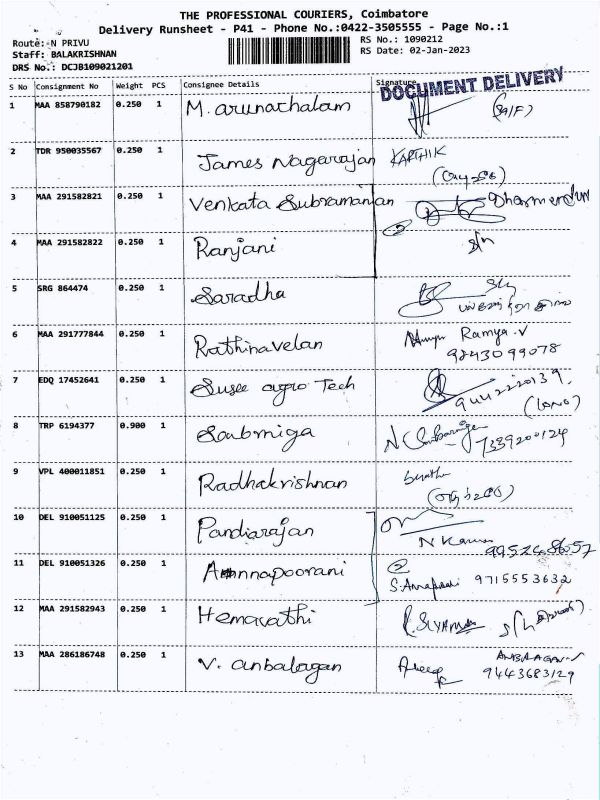 THE PROFESSIONAL COURIERS, Coimbatore
Delivery Runsheet - P41 - Phone No.:0422-3505555 - Page No.:1
Route: N PRIVU
RS No.: 1090212
Staff: BALAKRISHNAN
RS Date: 02-Jan-2023
DRS No.: DCJB109021201
S No Consignment No Weight PCS Consignee Details Signature
DOCUMENT DELIVERY
1 MAA 858790182 0.250 1 M. arunachalam
2 TDR 950035567 0.250 1 James Nagarajan KARTHIK
3 MAA 291582821 0.250 1 Venkata Subramanian
4 MAA 291582822 0.250 1 Ranjani
5 SRG 864474 0.250 1 Saradha
6 MAA 291777844 0.250 1 Rathinavelan Ramya.V
9243099078
7 EDQ 17452641 0.250 1 Susee agro Tech
9442220139
8 TRP 6194377 0.900 1 Soubmiga
7339200124
9 VPL 400011851 0.250 1 Radhakrishnan
10 DEL 910051125 0.250 1 Pandiarajan
11 DEL 910051326 0.250 1 Annapoorani 9715553632
12 MAA 291582943 0.250 1 Hemavathi
13 MAA 286186748 0.250 1 V. anbalagan
9443683129